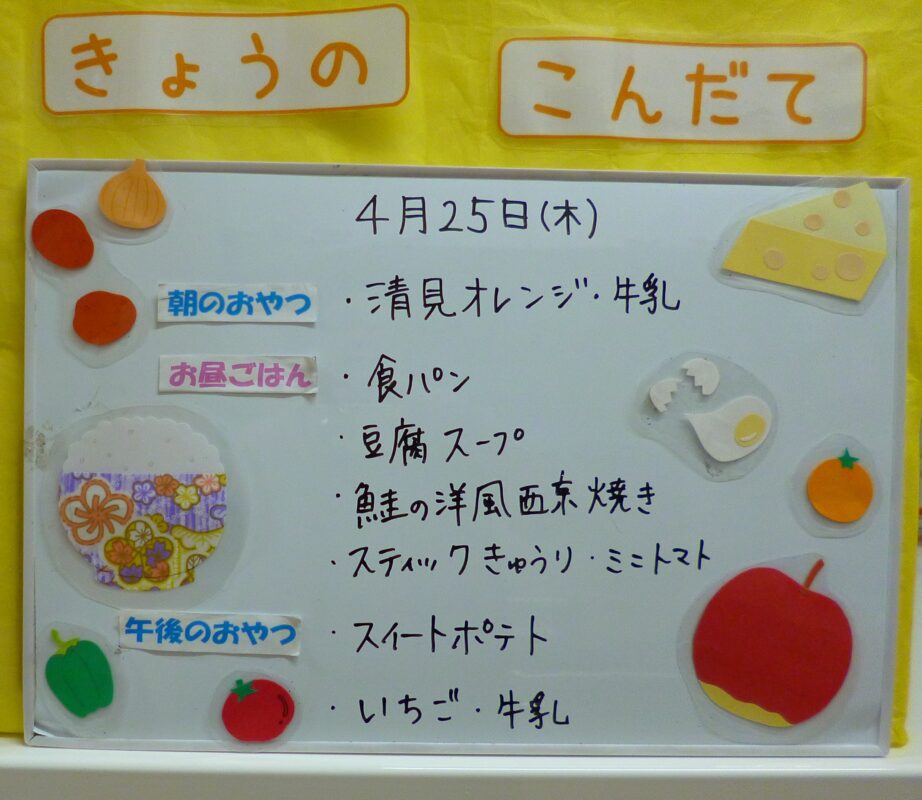 きょうの こんだて
4月25日(木)
朝のおやつ ・清見オレンジ・牛乳
お昼ごはん ・食パン
・豆腐スープ
・鮭の洋風西京焼き
・スティックきゅうり・ミニトマト
午後のおやつ ・スイートポテト
・いちご・牛乳